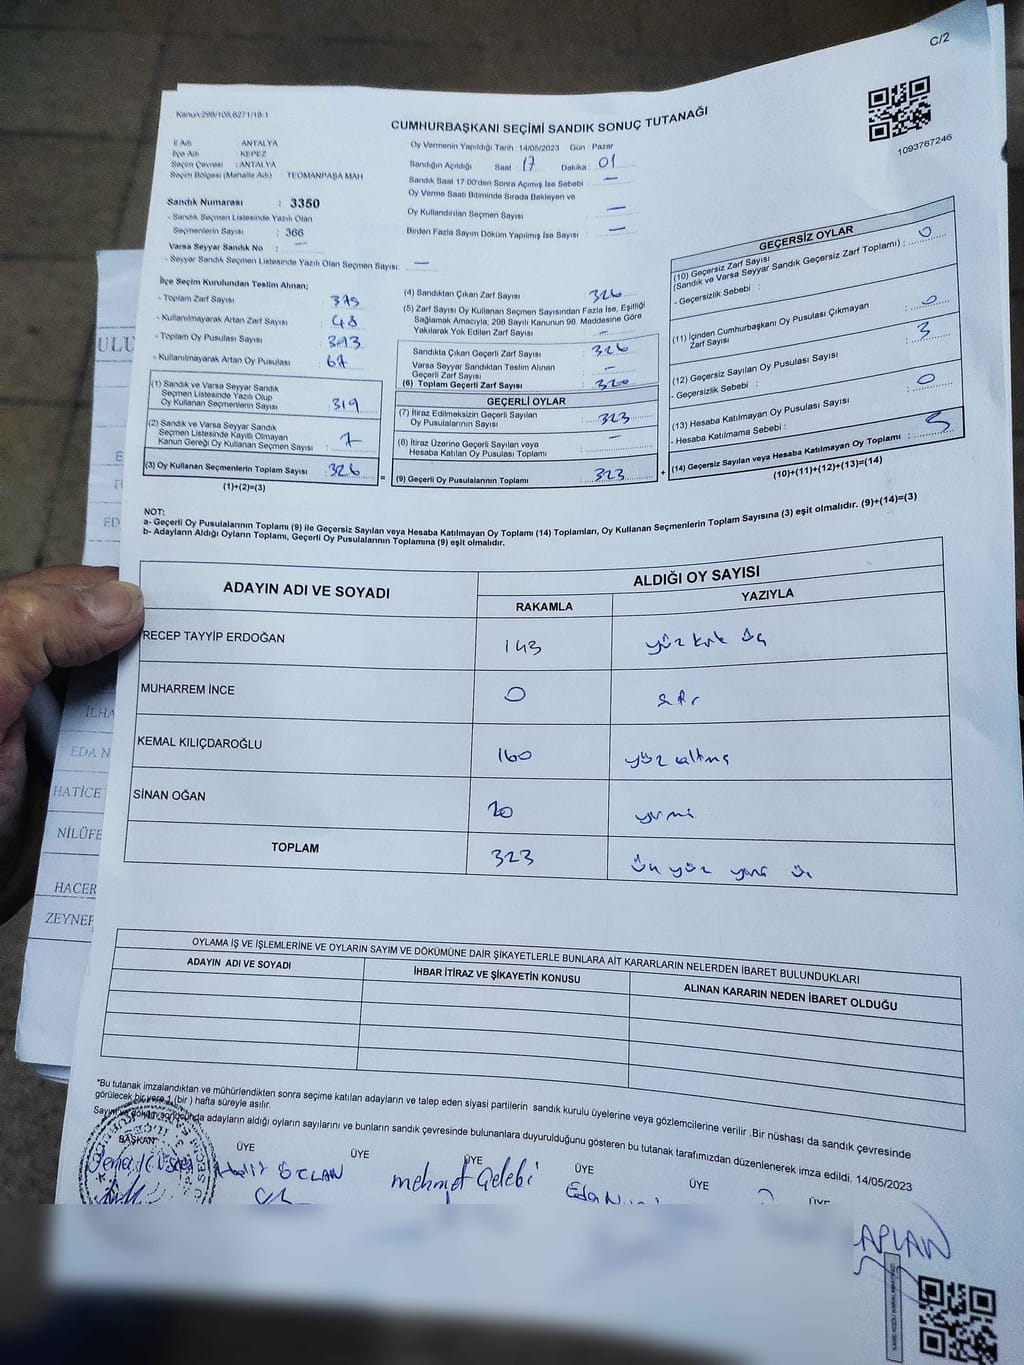 C/2
Kanun:298/105,6271/18-1
CUMHURBAŞKANI SEÇİMİ SANDIK SONUÇ TUTANAĞI
1093767246
İl Adı : ANTALYA
İlçe Adı : KEPEZ
Seçim Çevresi : ANTALYA
Seçim Bölgesi (Mahalle Adı) : TEOMANPAŞA MAH
Sandık Numarası : 3350
- Sandık Seçmen Listesinde Yazılı Olan
Seçmenlerin Sayısı : 366
Varsa Seyyar Sandık No : —
- Seyyar Sandık Seçmen Listesinde Yazılı Olan Seçmen Sayısı: —
Oy Vermenin Yapıldığı Tarih : 14/05/2023 Gün : Pazar
Sandığın Açıldığı Saat 17 Dakika 01
Sandık Saat 17:00'den Sonra Açımış İse Sebebi —
Oy Verme Saati Bitiminde Sırada Bekleyen ve
Oy Kullandırılan Seçmen Sayısı —
Birden Fazla Sayım Döküm Yapılmış İse Sayısı —
İlçe Seçim Kurulundan Teslim Alınan;
- Toplam Zarf Sayısı : 375
- Kullanılmayarak Artan Zarf Sayısı : 48
- Toplam Oy Pusulası Sayısı : 393
- Kullanılmayarak Artan Oy Pusulası : 67
(1) Sandık ve Varsa Seyyar Sandık
Seçmen Listesinde Yazılı Olup
Oy Kullanan Seçmenlerin Sayısı : 319
(2) Sandık ve Varsa Seyyar Sandık
Seçmen Listesinde Kayıtlı Olmayan
Kanun Gereği Oy Kullanan Seçmen Sayısı : 7
(3) Oy Kullanan Seçmenlerin Toplam Sayısı : 326
(1)+(2)=(3)
(4) Sandıktan Çıkan Zarf Sayısı : 326
(5) Zarf Sayısı Oy Kullanan Seçmen Sayısından Fazla İse, Eşitliği
Sağlamak Amacıyla; 298 Sayılı Kanunun 98. Maddesine Göre
Yakılarak Yok Edilen Zarf Sayısı :
Sandıkta Çıkan Geçerli Zarf Sayısı : 326
Varsa Seyyar Sandıktan Teslim Alınan
Geçerli Zarf Sayısı : —
(6) Toplam Geçerli Zarf Sayısı : 326
GEÇERLİ OYLAR
(7) İtiraz Edilmeksizin Geçerli Sayılan
Oy Pusulalarının Sayısı : 323
(8) İtiraz Üzerine Geçerli Sayılan veya
Hesaba Katılan Oy Pusulası Toplamı : —
(9) Geçerli Oy Pusulalarının Toplamı : 323
GEÇERSİZ OYLAR
(10) Geçersiz Zarf Sayısı
(Sandık ve Varsa Seyyar Sandık Geçersiz Zarf Toplamı) : 0
- Geçersizlik Sebebi :
(11) İçinden Cumhurbaşkanı Oy Pusulası Çıkmayan
Zarf Sayısı : 0
(12) Geçersiz Sayılan Oy Pusulası Sayısı : 3
- Geçersizlik Sebebi :
(13) Hesaba Katılmayan Oy Pusulası Sayısı : 0
- Hesaba Katılmama Sebebi :
(14) Geçersiz Sayılan veya Hesaba Katılmayan Oy Toplamı : 3
(10)+(11)+(12)+(13)=(14)
NOT:
a- Geçerli Oy Pusulalarının Toplamı (9) ile Geçersiz Sayılan veya Hesaba Katılmayan Oy Toplamı (14) Toplamları, Oy Kullanan Seçmenlerin Toplam Sayısına (3) eşit olmalıdır. (9)+(14)=(3)
b- Adayların Aldığı Oyların Toplamı, Geçerli Oy Pusulalarının Toplamına (9) eşit olmalıdır.
ADAYIN ADI VE SOYADI ALDIĞI OY SAYISI
RAKAMLA YAZIYLA
RECEP TAYYİP ERDOĞAN 143 yüz kırk üç
MUHARREM İNCE 0 sıfır
KEMAL KILIÇDAROĞLU 160 yüz altmış
SİNAN OĞAN 20 yirmi
TOPLAM 323 üç yüz yirmi üç
OYLAMA İŞ VE İŞLEMLERİNE VE OYLARIN SAYIM VE DÖKÜMÜNE DAİR ŞİKAYETLERLE BUNLARA AİT KARARLARIN NELERDEN İBARET BULUNDUKLARI
ADAYIN ADI VE SOYADI İHBAR İTİRAZ VE ŞİKAYETİN KONUSU ALINAN KARARIN NEDEN İBARET OLDUĞU
*Bu tutanak imzalandıktan ve mühürlendikten sonra seçime katılan adayların ve talep eden siyasi partilerin sandık kurulu üyelerine veya gözlemcilerine verilir .Bir nüshası da sandık çevresinde
görülecek bir yere 1 (bir ) hafta süreyle asılır.
Sayım ve döküm sonucunda adayların aldığı oyların sayılarını ve bunların sandık çevresinde bulunanlara duyurulduğunu gösteren bu tutanak tarafımızdan düzenlenerek imza edildi. 14/05/2023
BAŞKAN ÜYE ÜYE ÜYE ÜYE ÜYE ÜYE
ÖCLAN mehmet Çelebi
APLAN
ULU
ED
İLHA
EDA N
HATİCE
NİLÜFE
HACER
ZEYNEP